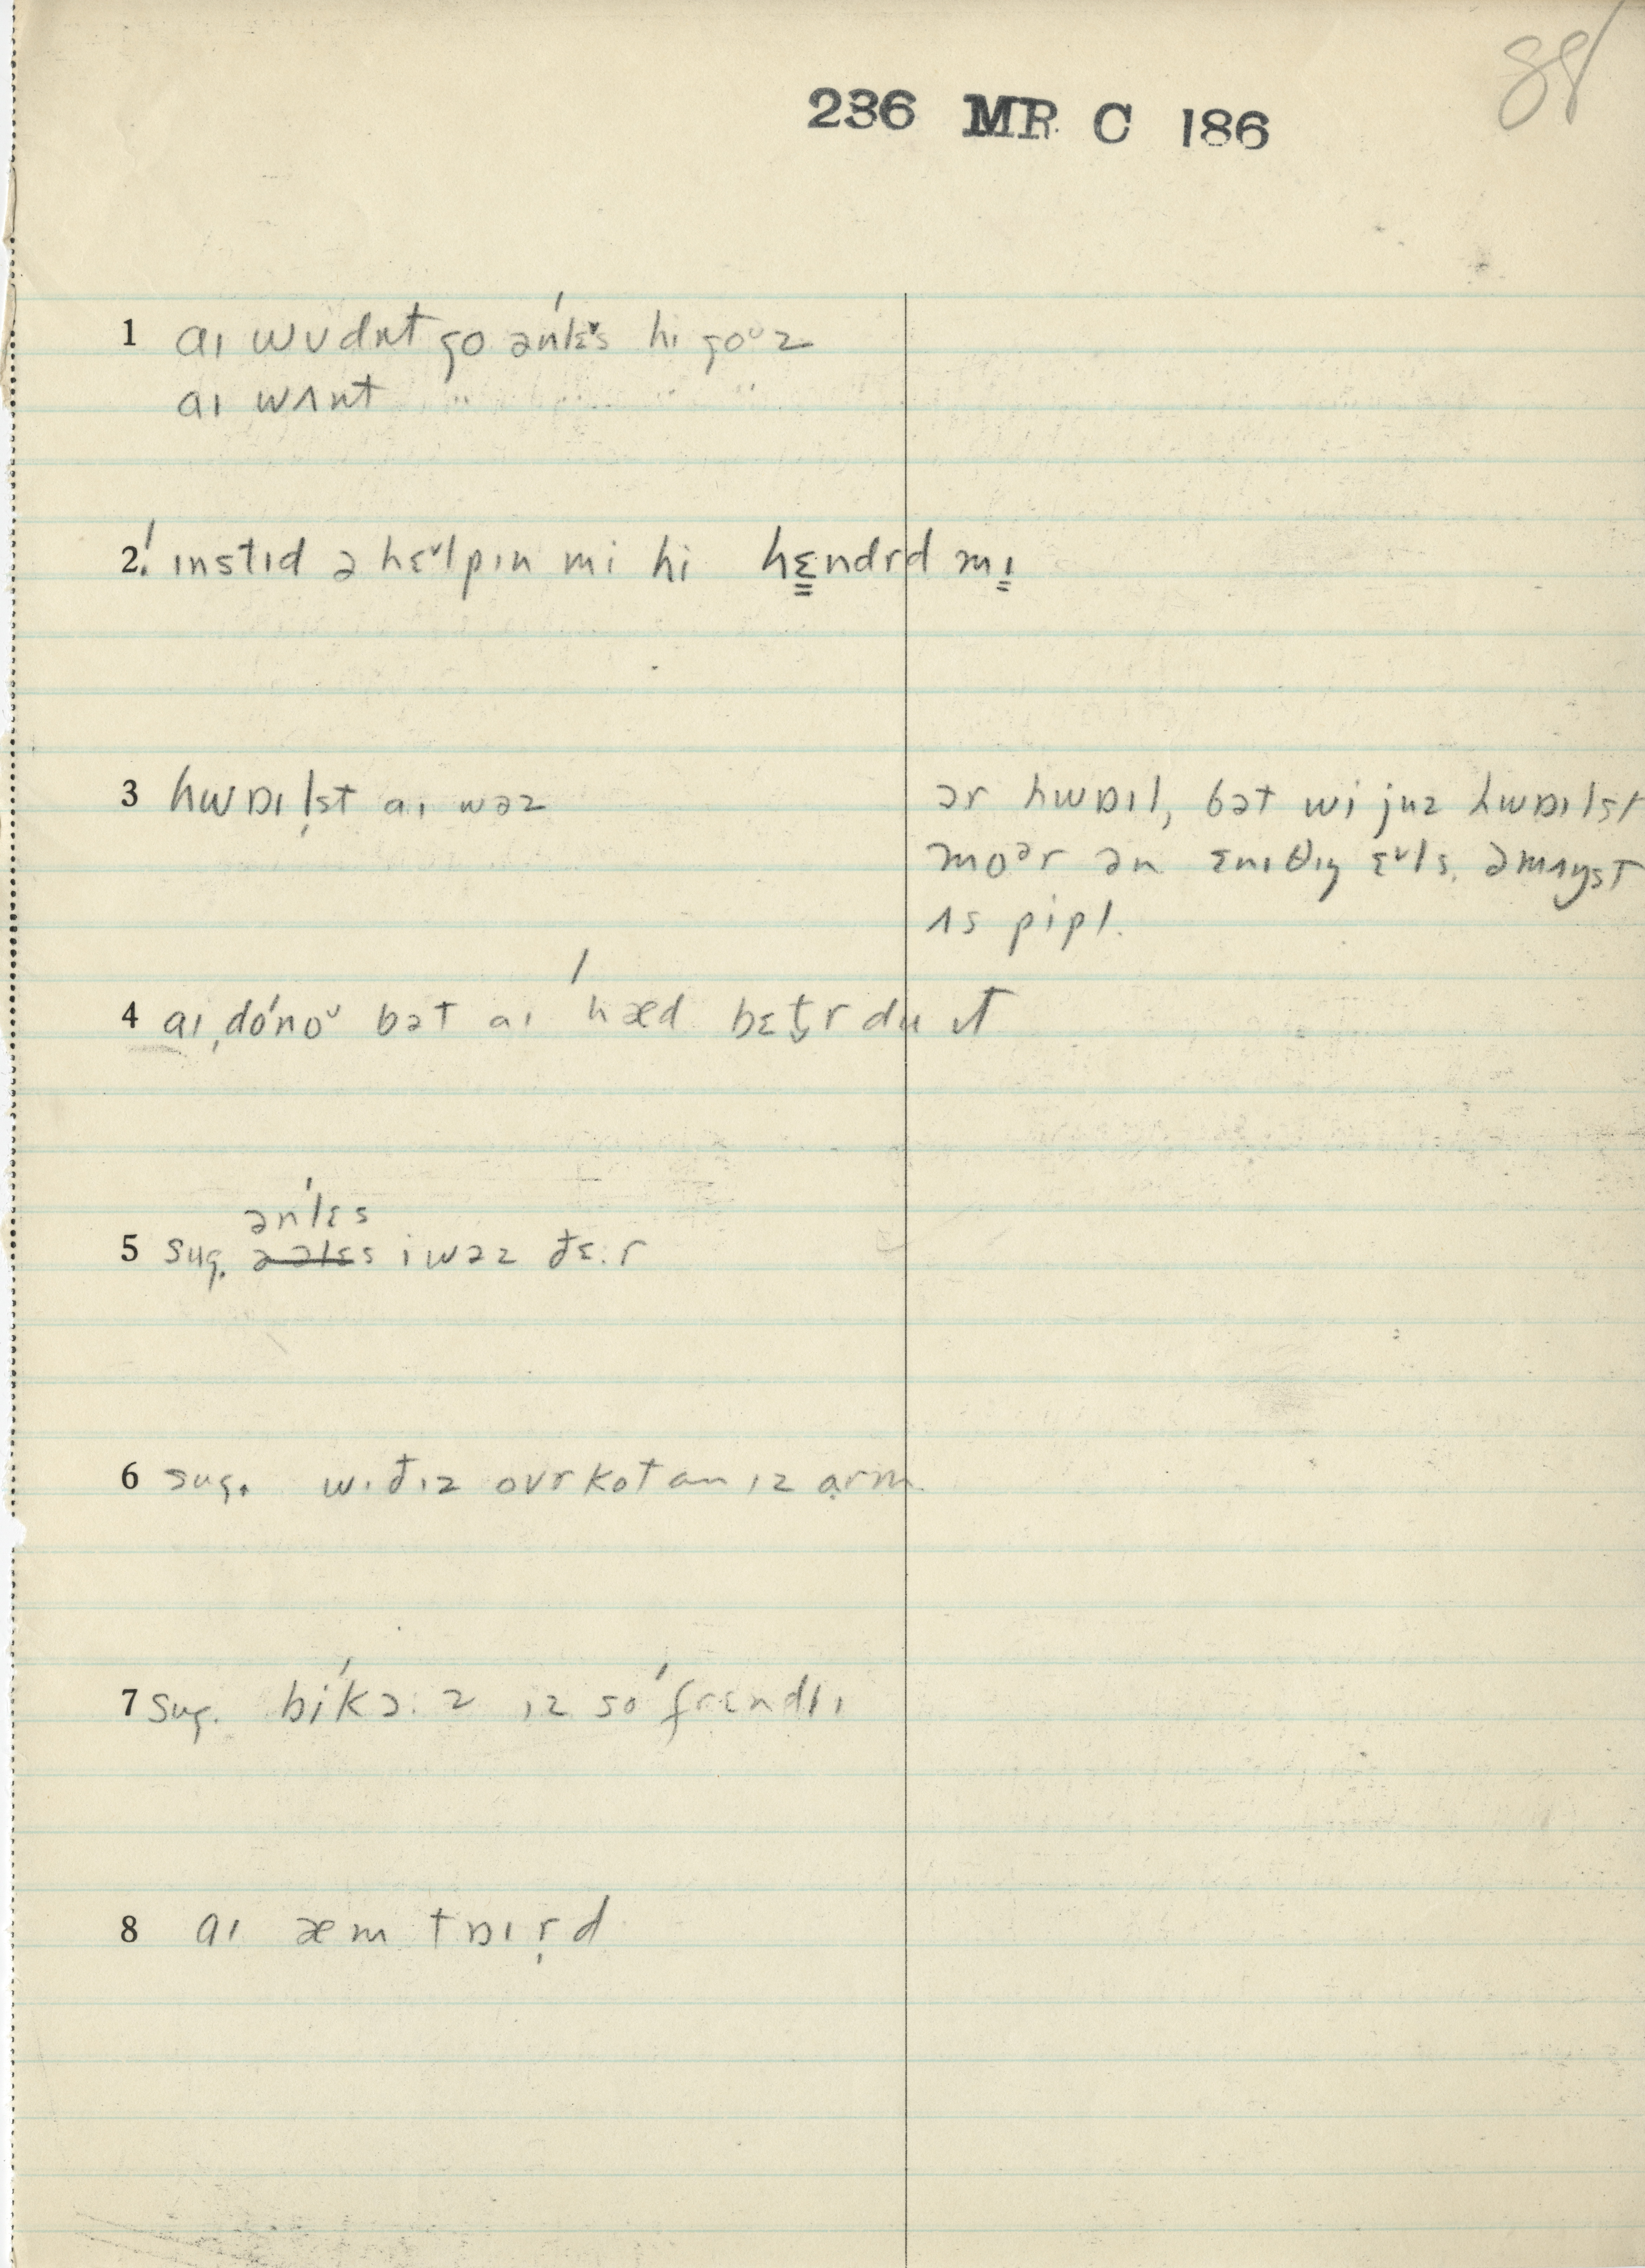 88
236 MR C 186
1 aɪ wʊdnt go ən'lɛᵛs hɪ goᵁz
aɪ wʌnt " " "
2! ɪnstɪd ə hɛᵛlpɪn mi hi hɛndrd mɪ
3 hwɒɪl̩st aɪ wəz
ər hwɒɪl, bət wi juz hwɒɪlst
moᵊr ən ɛnɪθɪŋ ɛᵛls. əmʌŋst
ʌs pipl.
4 aɪ ˌdo'noᵁ bət aɪ 'hæd bɛt̬r du ɪt
ən'lɛs
5 sug. əəlɛs i wəz ðɛ.r
6 sug. wɪðɪz ovrkot an ɪz arm
7 sug. bi'kɔ.z ɪz so 'frɛndlɪ
8 aɪ æm tɒɪr̩d